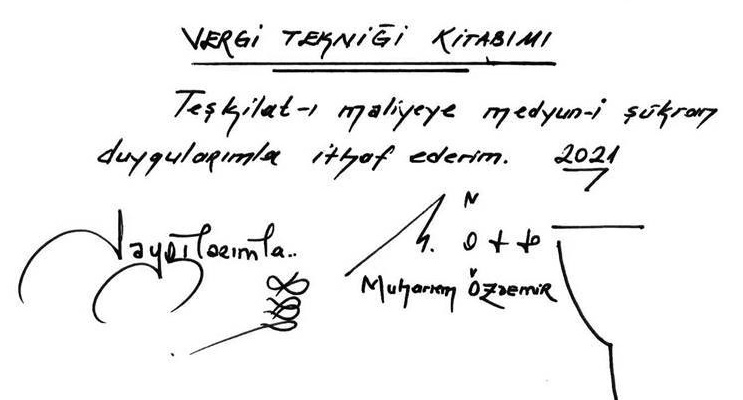 VERGİ TEKNİĞİ KİTABIMI
Teşkilat-ı maliyeye medyun-i şükran
duygularımla ithaf ederim. 2021
Saygılarımla..
Muharrem ÖZDEMİR